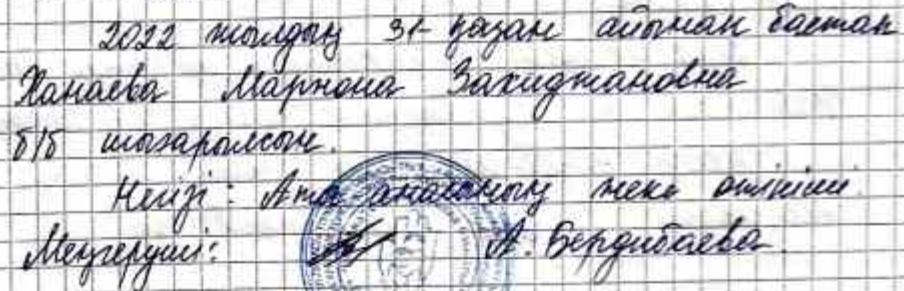 2022 жылдың 31- қазан айынан бастап
Ханаева Маржона Захиджановна
б/б шығарылсын.
Негізі: Ата-анасының жеке өтініші
Меңгеруші: А. Бердибаева.